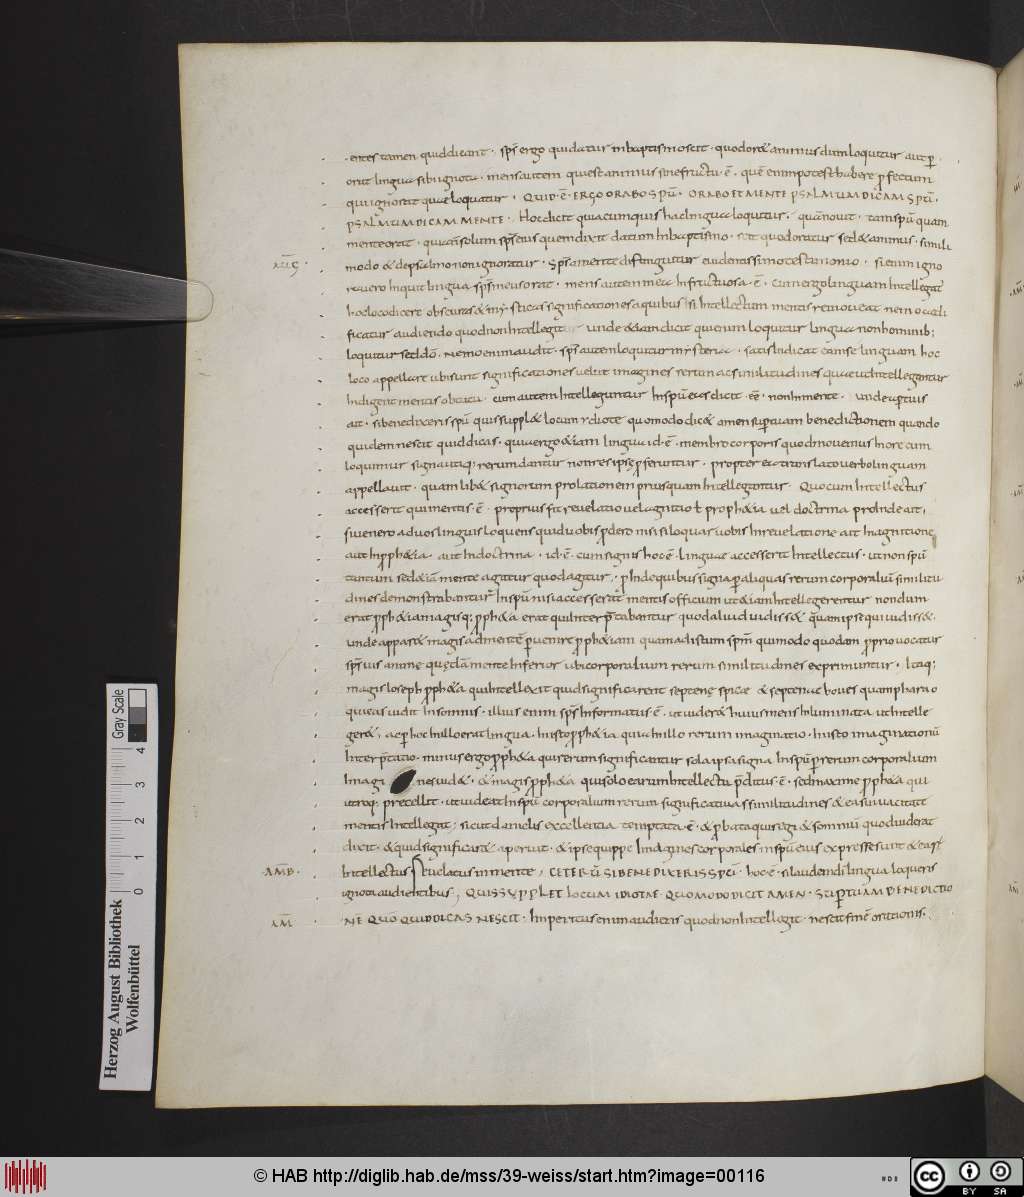 entes tamen quid dicant · sp̅s̅ ergo qui datur in baptismo scit · quod oret animus dum loquitur aut p̲
orat lingua sibi ignota · mens autem qui est animus sine fructu · ē · quē enim potest habere profectum
qui ignorat quae loquatur · QUID · Ē · ERGO ORABO SPŪ · ORABO ET MENTE PSALMUM DICAM SPŪ ·
PSALMUM DICAM MENTE · Hoc dicit quia cum quis hac lingua loquitur · quā nouit · tam spū quam
mente orat · quia n̄ solum sp̅s̅ eius quem dixit datum in baptismo scit quod oratur sed & animus · simili
AUG̅ · modo & de psalmo non ignoratur · Sp̅s a mente distinguitur euidentissimo testimonio · si enim igno
rauero inquit lingua sp̅s̅ meus orat · mens autem mea Infructuosa · ē · Cum ergo linguam Intellegat̅
hoc loco dicere obscuras & mysticas significationes a quibus si Intellectum mentis remoueat nemo aedi
ficatur audiendo quod non Intellegit unde & iam dicit qui enim loquitur lingua non hominib;
loquitur sed d̅o̅ · nemo enim audit · sp̅s̅ autem loquitur mysteria · satis Indicat eam se linguam hoc
loco appellare ubi sunt significationes uelut imagines rerum ac similitudines quae ut Intellegantur
Indigent mentis obtutu · cum autem Intelleguntur In spū eas dicit · eē · non In mente · unde ap̲tius
ait · si benedixeris spū quis supplet locum idiote quomodo dic& amen sup̲ tuam benedictionem quando
quidem nescit quid dicas · quia ergo & iam lingua id · ē · membro corporis quod mouemus In ore cum
loquimur signa utiq; rerum dantur non res ipsę p̲feruntur · propter ea translato uerbo linguam
appellauit · quam lib& signorum prolationem priusquam Intellegantur · Quo cum Intellectus
accesserit qui mentis · ē · proprius fit reuelatio uel agnitio ł proph&ia uel doctrina proInde ait ,
si uenero ad uos linguis loquens quid uobis p̲dero nisi si loquar uobis In reuelatione aut In agnitione
aut In p̲ph&ia aut In doctrina · id · ē · cum signis hoc · ē · linguae accesserit Intellectus · ut non spū
tantum sed & iā mente agatur quod agitur , · p̲Inde quibus signa p̲ aliquas rerum corporaliū similitu
dines demonstrabantur In spū nisi accesserat̅ mentis officium ut & iam Intellegerentur nondum
erat p̲ph&ia magisq; p̲ph&a erat qui Interp̅tabantur quod alius uidiss& quam ipse qui uidiss& ·
unde appar& magis ad mentē p̲tinere p̲ph&iam quam ad istum sp̅m̅ qui modo quodam p̲prio uocatur
sp̅s̅ uis animę quędā mente Inferior ubi corporalium rerum similitudines exprimuntur · Itaq;
magis Ioseph p̲ph&a qui Intellexit quid significarent septem spicę & septem boues quam pharao
qui eas uidit In somnis · illius enim sp̅s̅ Informatus · ē · ut uider& huius mens Inluminata ut Intelle
ger& , ac p̲ hoc In illo erat lingua · In isto p̲ph&ia quia In illo rerum imaginatio · In isto imaginationū
Interp̅tatio · minus ergo p̲ph&a qui rerum significantur sola ipsa signa In spū p̲ rerum corporalium
Imagines uid& · & magis p̲ph&a qui solo earum Intellectu p̅ditus · ē · sed maxime p̲ph&a qui
utroq; precellit · ut uideat In spū corporalium rerum significatiuas similitudines & eas uiuacitate
mentis Intellegat ; sicut danielis excellentia temptata · ē · & p̲bata qui regi & somniū quod uiderat
dixit · & quid significar& aperuit · & ipse quippe Imagines corporales In spū eius expresse sunt & eaꝝ
· AMB · Intellectus reuelatus in mente , CETERŪ SI BENEDIXERIS SPŪ · hoc · ē · si laudem dī lingua loqueris
ignota audientibus , QUIS SUPPLET LOCUM IDIOTAE · QUOMODO DICIT AMEN · SUP̲ TUAM BENEDICTIO
AM̅ NE QUŌ QUID DICAS NESCIT · Imperitus enim audiens quod non Intellegit · nescit finē orationis ·
Gray Scale
0 1 2 3 4
Herzog August Bibliothek
Wolfenbüttel
© HAB http://diglib.hab.de/mss/39-weiss/start.htm?image=00116
cc BY SA